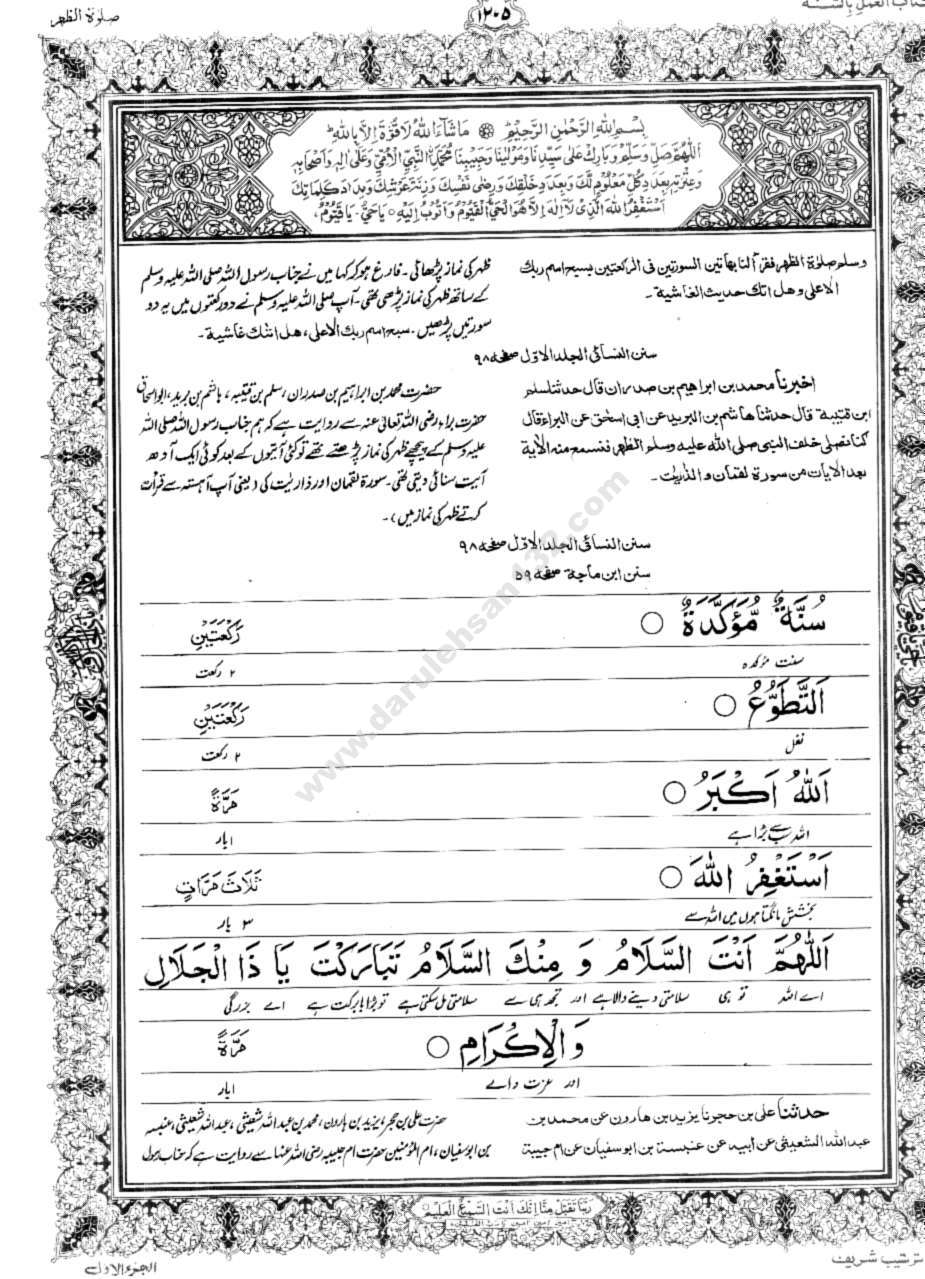 کتاب العمل بالسنة
١٢٠٥
صلوٰة الظهر
بِسْمِ اللهِ الرَّحْمٰنِ الرَّحِيْمِ مَا شَآءَ اللهُ لَا قُوَّةَ اِلَّا بِاللهِ
اَللّٰهُمَّ صَلِّ وَسَلِّمْ وَبَارِكْ عَلٰى سَيِّدِنَا وَمَوْلٰينَا وَحَبِيْبِنَا مُحَمَّدِ النَّبِيِّ الْاُمِّيِّ وَعَلٰى اٰلِهٖ وَاَصْحَابِهٖ
وَعِتْرَتِهٖ بِعَدَدِ كُلِّ مَعْلُوْمٍ لَّكَ وَبِعَدَدِ خَلْقِكَ وَرِضٰى نَفْسِكَ وَزِنَةِ عَرْشِكَ وَمِدَادِ كَلِمَاتِكَ
اَسْتَغْفِرُ اللهَ الَّذِيْ لَآ اِلٰهَ اِلَّا هُوَ الْحَيُّ الْقَيُّوْمُ وَاَتُوْبُ اِلَيْهِ - يَا حَيُّ - يَا قَيُّوْمُ
وسلم صلوٰة الظهر فقرأ لنا بهاتين السورتين فى الركعتين بسبح اسم ربك
الاعلى وهل اتك حديث الغاشية -
ظہر کی نماز پڑھائی - فارغ ہو کر کہا میں نے جناب رسول اللہ صلی اللہ علیہ وسلم
کے ساتھ ظہر کی نماز پڑھی تھی - آپ صلی اللہ علیہ وسلم نے دو رکعتوں میں یہ دو
سورتیں پڑھیں - سبح اسم ربك الاعلى ، هل اتك غاشية -
سنن النسائى الجلد الاوّل صفحه ٩٨
اخبرنا محمد بن ابراهيم بن صدران قال حدثنا سلم
ابن قتيبة قال حدثنا هاشم بن البريد عن ابى اسحٰق عن البراء قال
كنا نصلى خلف النبى صلى الله عليه وسلم الظهر فنسمع منه الاٰية
بعد الاٰيات من سورة لقمان و الذّٰريٰت -
حضرت محمد بن ابراہیم بن صدران ، سلم بن قتیبہ ، ہاشم بن برید ، ابو اسحاق
حضرت براء رضی اللہ تعالیٰ عنہ سے روایت ہے کہ ہم جناب رسول اللہ صلی اللہ
علیہ وسلم کے پیچھے ظہر کی نماز پڑھتے تھے تو کئی آیتوں کے بعد کوئی ایک آدھ
آیت سنائی دیتی تھی - سورۃ لقمان اور ذاریٰت کی (یعنی آپ آہستہ سے قرأت
کرتے ظہر کی نماز میں) -
سنن النسائى الجلد الاوّل صفحه ٩٨
سنن ابن ماجة صفحه ٥٩
سُنَّةٌ مُّؤَكَّدَةٌ ○ رَكْعَتَيْنِ
سنت مؤکدہ ۲ رکعت
اَلتَّطَوُّعُ ○ رَكْعَتَيْنِ
نفل ۲ رکعت
اَللهُ اَكْبَرُ ○ مَرَّةً
اللہ سب سے بڑا ہے ۱ بار
اَسْتَغْفِرُ اللهَ ○ ثَلَاثَ مَرَّاتٍ
بخشش مانگتا ہوں میں اللہ سے ۳ بار
اَللّٰهُمَّ اَنْتَ السَّلَامُ وَ مِنْكَ السَّلَامُ تَبَارَكْتَ يَا ذَا الْجَلَالِ
اے اللہ تو ہی سلامتی دینے والا ہے اور تجھ ہی سے سلامتی مل سکتی ہے تو بڑا بابرکت ہے اے بزرگی
وَالْاِكْرَامِ ○ مَرَّةً
اور عزت والے ۱ بار
حدثنا على بن حجر نا يزيد بن هارون عن محمد بن
عبد الله الشعيثى عن ابيه عن عنبسة بن ابو سفيان عن ام حبيبة
حضرت علی بن حجر ، یزید بن ہارون ، محمد بن عبد اللہ شعیثی ، عبد اللہ شعیثی ، عنبسہ
بن ابو سفیان ، ام المؤمنین حضرت ام حبیبہ رضی اللہ عنہا سے روایت ہے کہ جناب رسول
رَبَّنَا تَقَبَّلْ مِنَّا اِنَّكَ اَنْتَ السَّمِيْعُ الْعَلِيْمُ
ترتیب شریف
الجزء الاول
www.darulehsan132.com